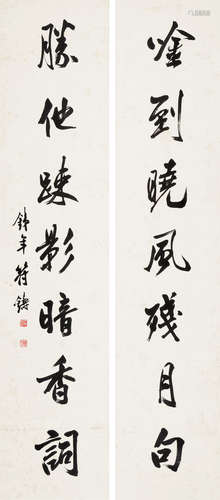 唫到曉風殘月句
勝他踈影暗香詞
銕年符鑄